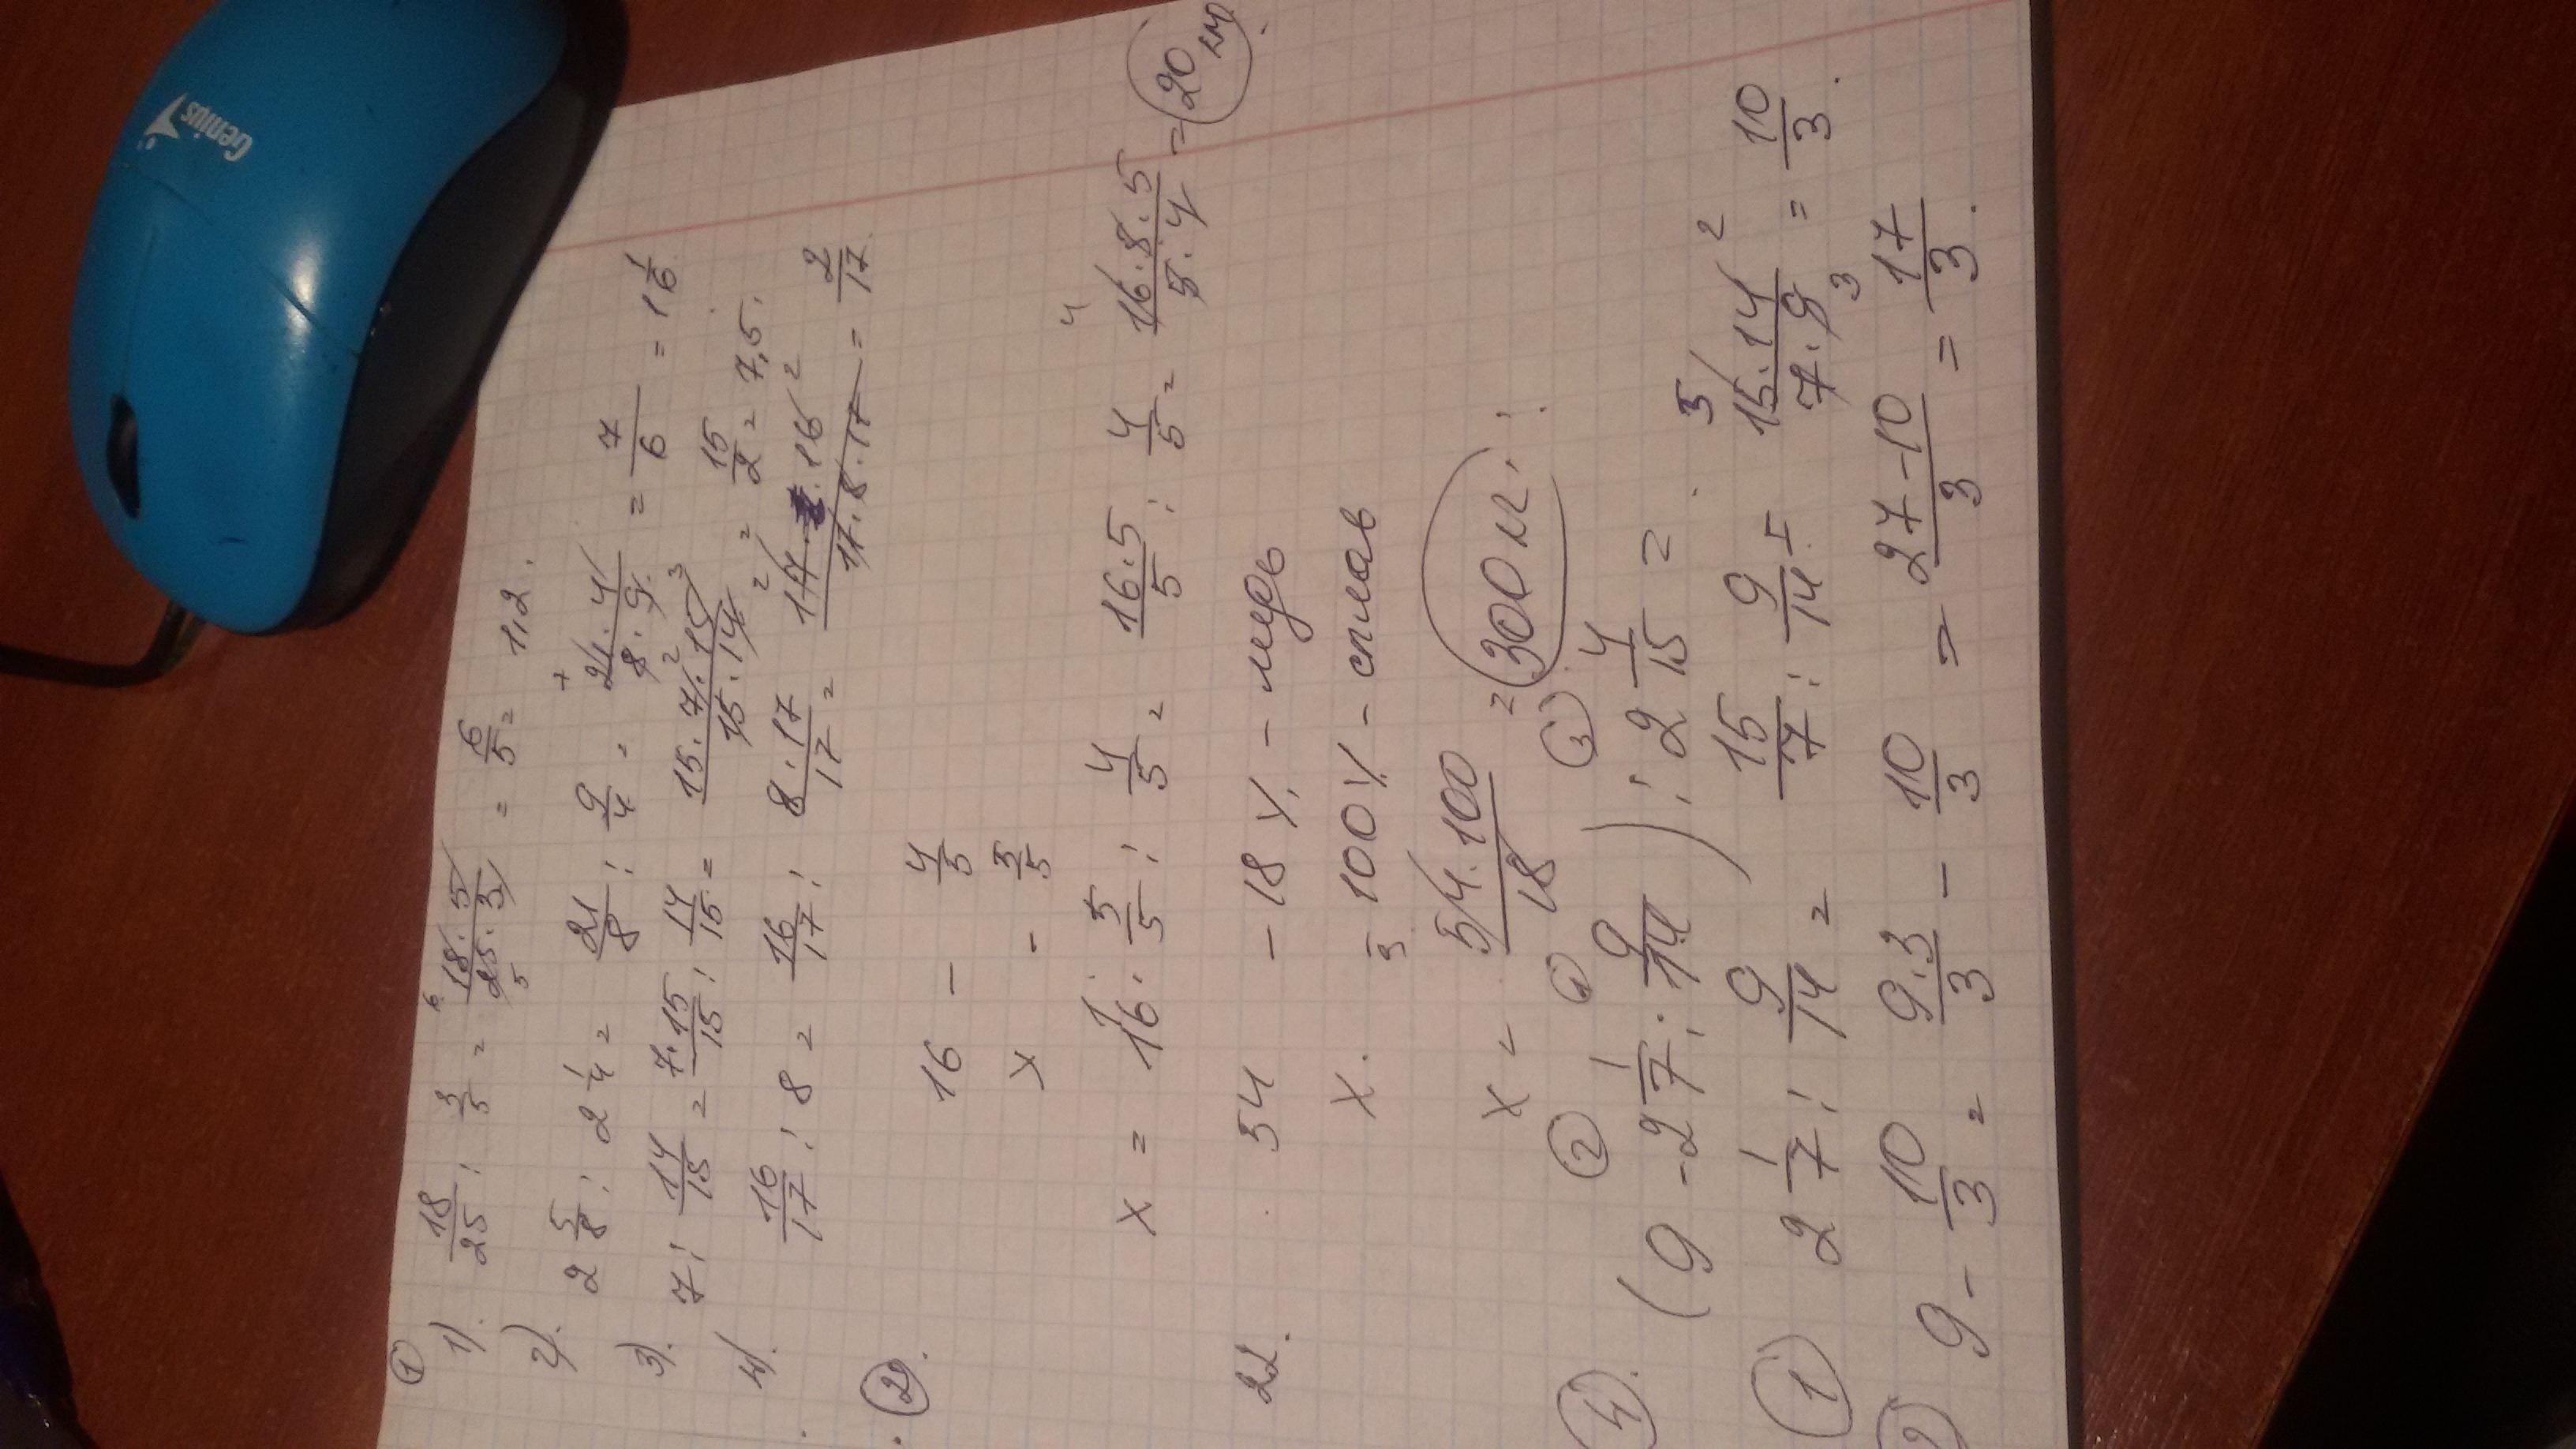 Genius
①
1). 18/25 : 3/5 = 18·5/25·3 = 6/5 = 1,2.
6
5
2). 2 5/8 : 2 1/4 = 21/8 : 9/4 = 21·4/8·9 = 7/6 = 1 1/6.
7
2 3
3). 7 : 14/15 = 7·15/15 : 14/15 = 15·7·15/15·14 = 15/2 = 7,5.
2
4). 16/17 : 8 = 16/17 : 8·17/17 = 17·16/17·8·17 = 2/17.
2
②.
16 - 4/5
x - 5/5
x = 16 · 5/5 : 4/5 = 16·5/5 : 4/5 = 16·8·5/5·4 = 20
4
22. 54 - 18% - медь
x. - 100% - сплав
3
x = 54·100/18 = 300 кг.
② ① ③
④. (9 - 2 1/7 : 9/14) : 2 4/15 =
① 2 1/7 : 9/14 = 15/7 : 9/14 = 15·14/7·9 = 10/3.
5 2
3
② 9 - 10/3 = 9·3/3 - 10/3 = 27-10/3 = 17/3.